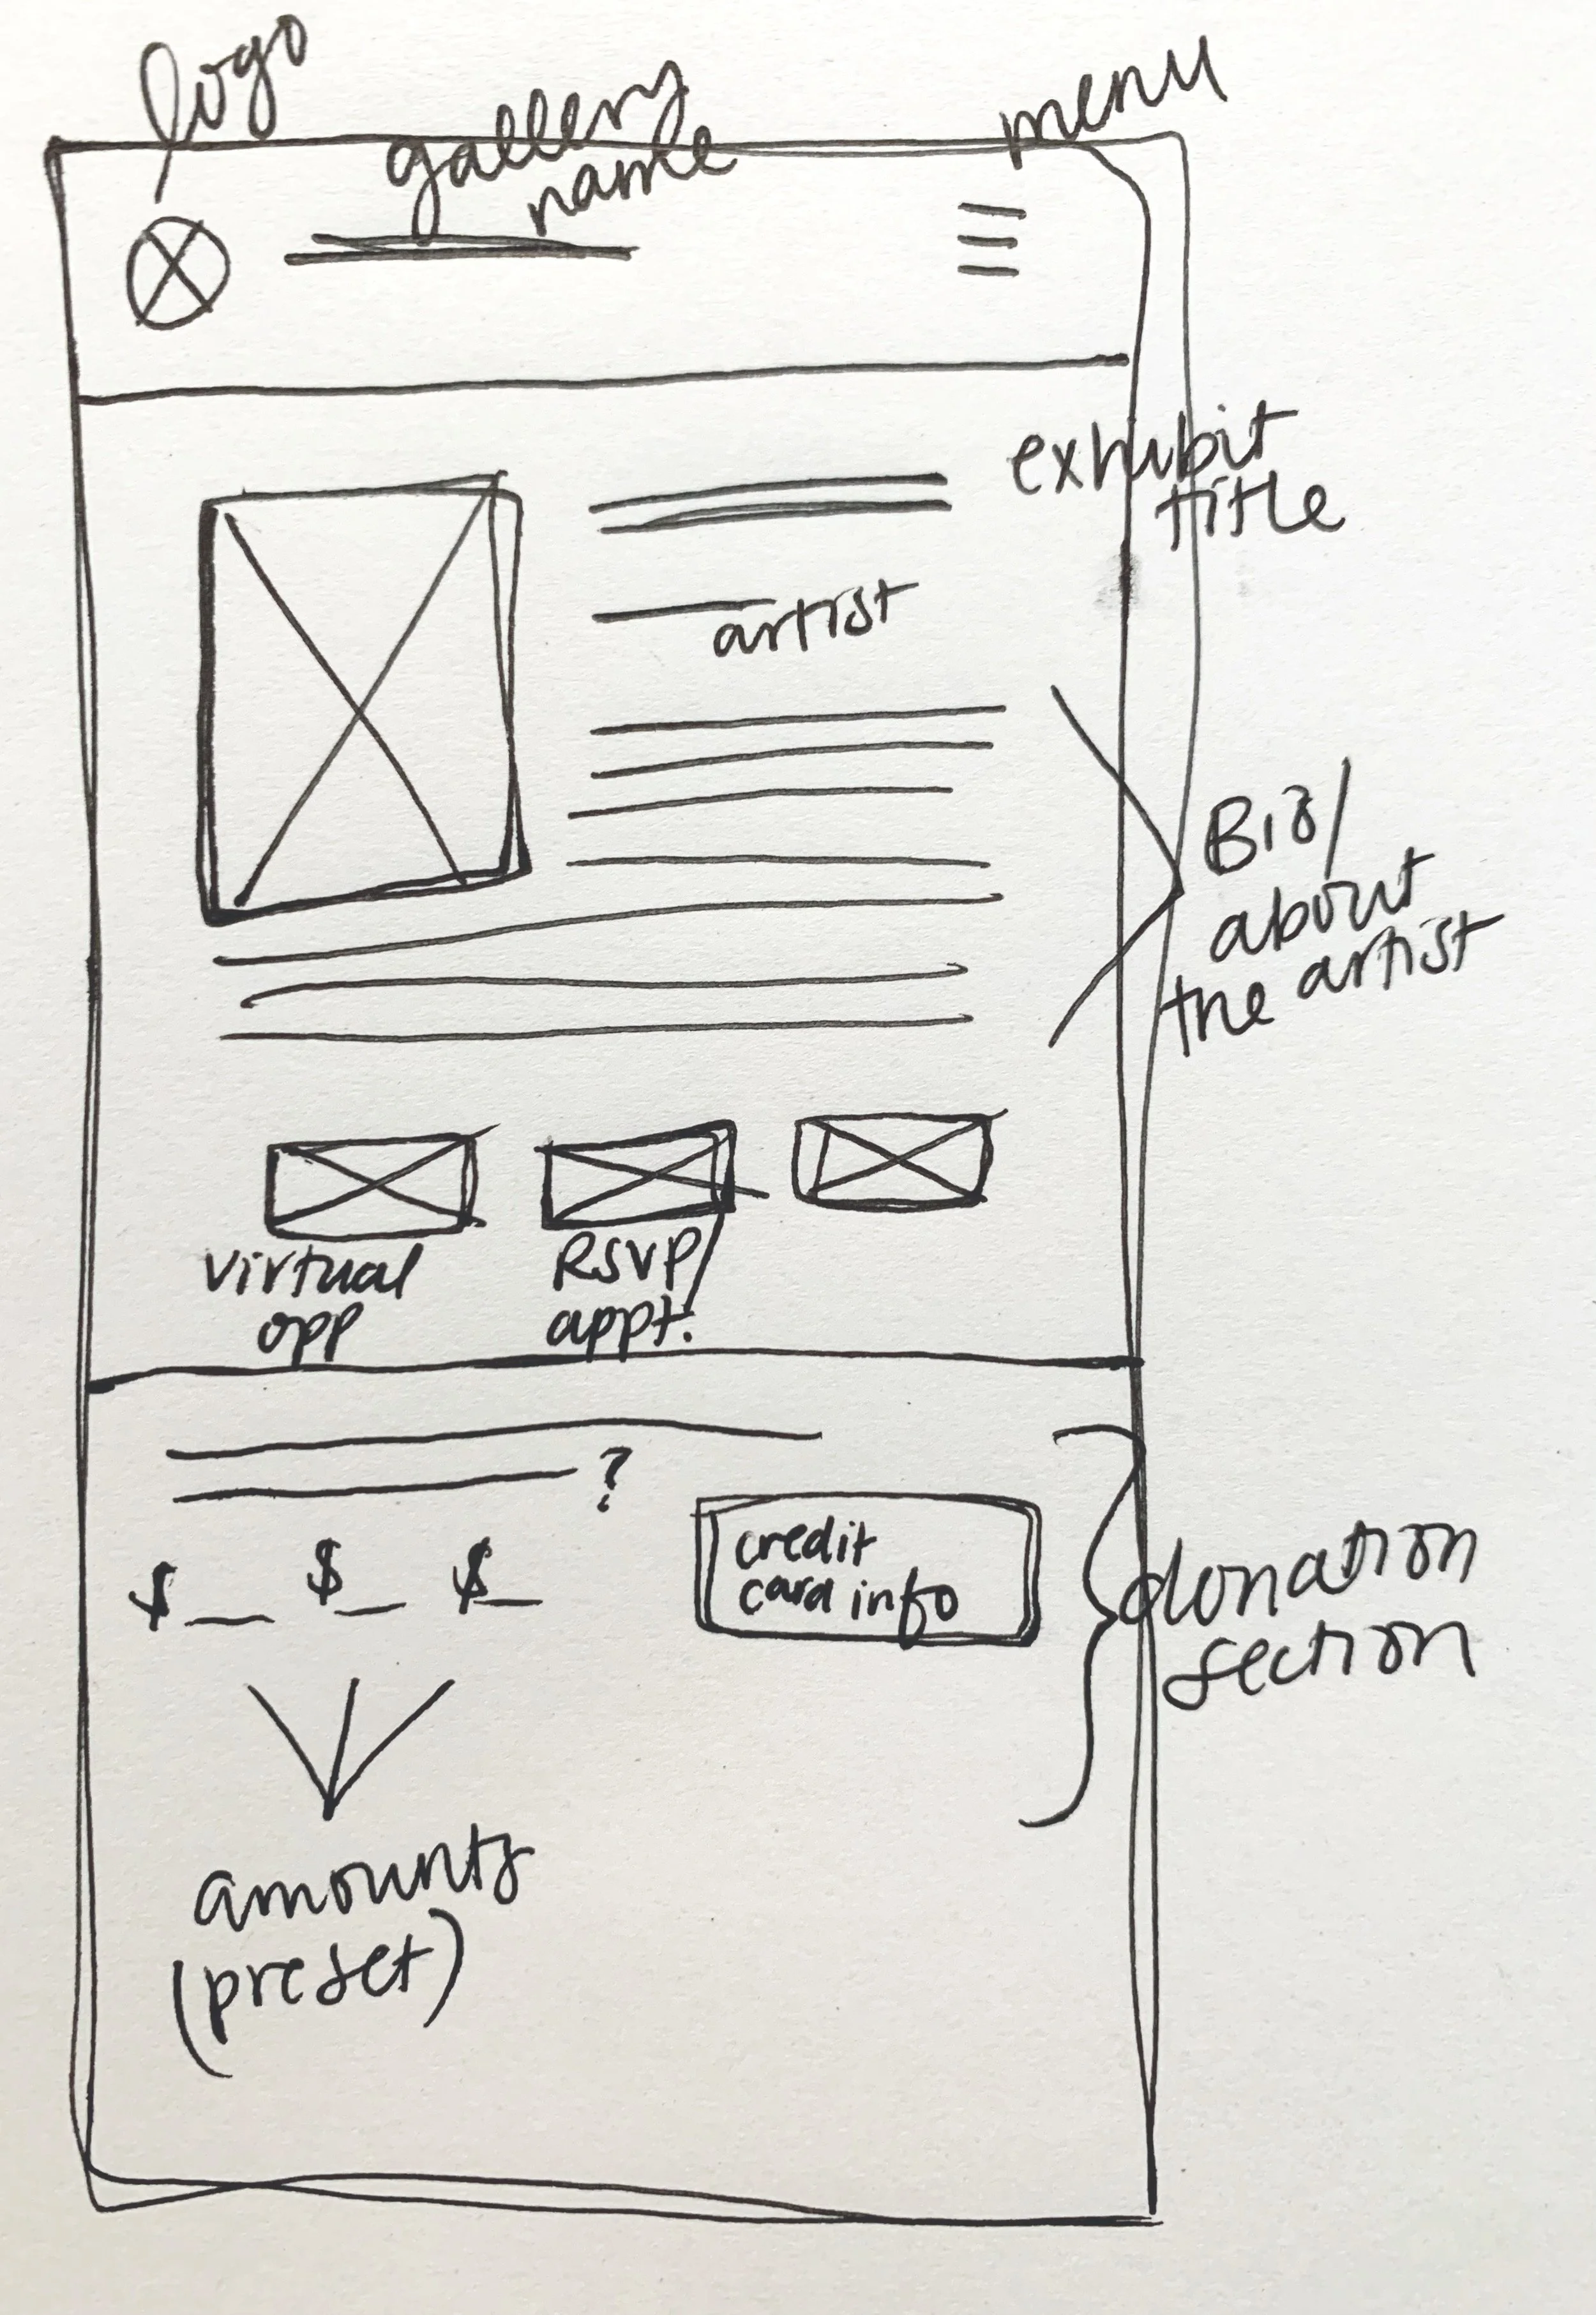 logo
gallery
name
menu
exhibit
title
artist
Bio/
about
the artist
virtual
opp
RSVP/
appt.
?
$ $ $
credit
card info
donation
section
amounts
(preset)